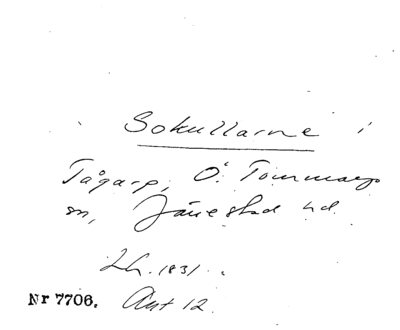 Sokullarne i
Tågarp, Ö. Tommarps
sn, Järrestad hd.
Lh. 1831.
Nr 7706. Akt 12.